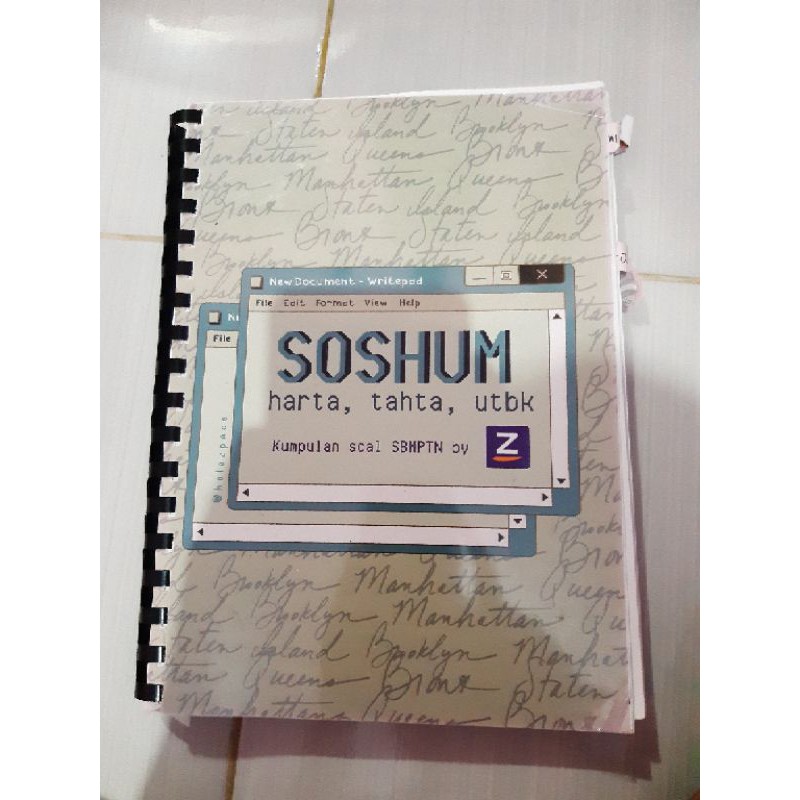 ten Island Brooklyn Manhattan
Staten Island Brooklyn
Manhattan Queens Bronx
klyn Manhattan Queens B
Bronx Staten Island Brooklyn
ueens Bronx Staten Island
Brooklyn Manhattan
New Document - Writepad
File Edit Format View Help
File
SOSHUM
harta, tahta, utbk
Kumpulan soal SBMPTN by Z
@holazpace
Brooklyn Manhattan Queen
and Brooklyn Manhattan Qu
taten Island Brooklyn Manhatt
ttan Queens Bronx Staten
Manhattan Queens Bronx